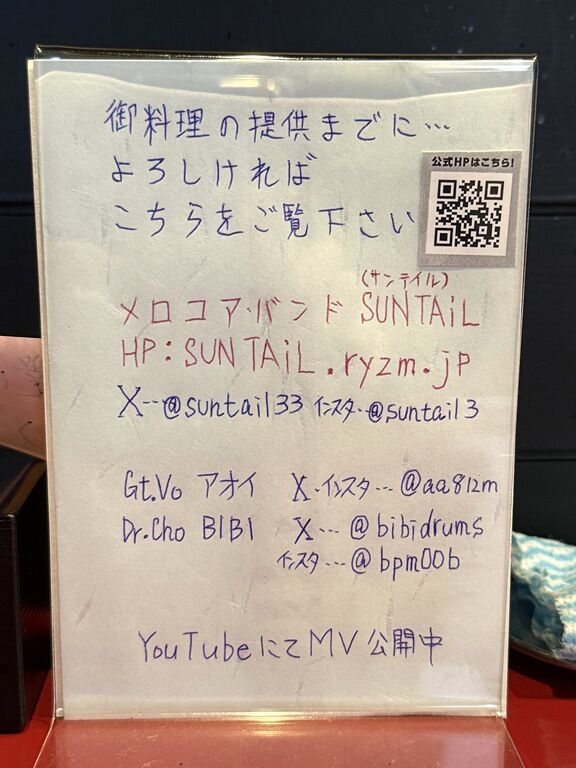 御料理の提供までに…
よろしければ
こちらをご覧下さい
公式HPはこちら!
(サンテイル)
メロコア・バンド SUNTAiL
HP:SUNTAiL.ryzm.jp
X…@suntail33 インスタ…@suntail3
Gt.Vo アオイ X・インスタ…@aa812m
Dr.Cho BIBI X…@bibidrums
インスタ…@bpm00b
YouTubeにてMV公開中